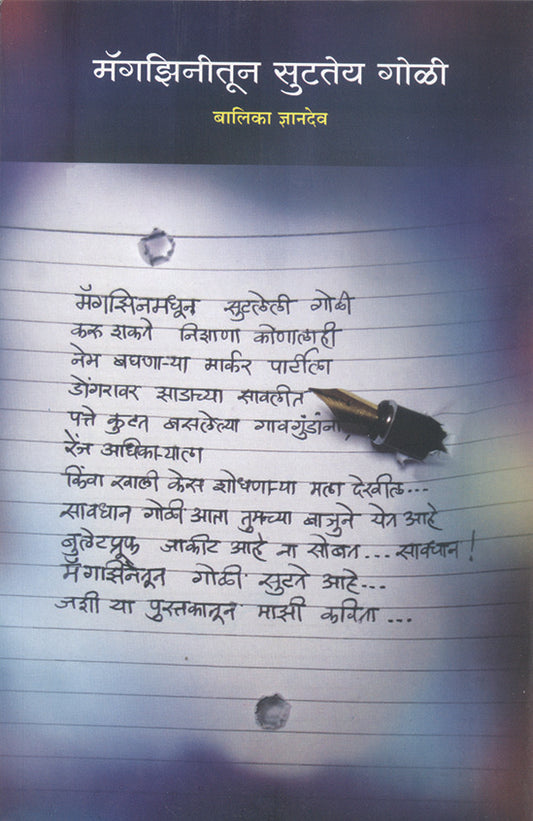 मॅगझिनीतून सुटतेय गोळी
बालिका ज्ञानदेव
मॅगझिनमधून सुटलेली गोळी
करू शकते निशाणा कोणालाही
नेम बघणाऱ्या मार्कर पार्टीला
डोंगरावर झाडाच्या सावलीत
पत्ते कुटत बसलेल्या गावगुंडांना,
रेंज अधिकाऱ्याला
किंवा खाली केस शोधणाऱ्या मला देखील...
सावधान गोळी आता तुमच्या बाजुने येत आहे
बुलेटप्रूफ जाकीट आहे ना सोबत... सावधान!
मॅगझिनीतून गोळी सुटते आहे...
जशी या पुस्तकातून माझी कविता ...